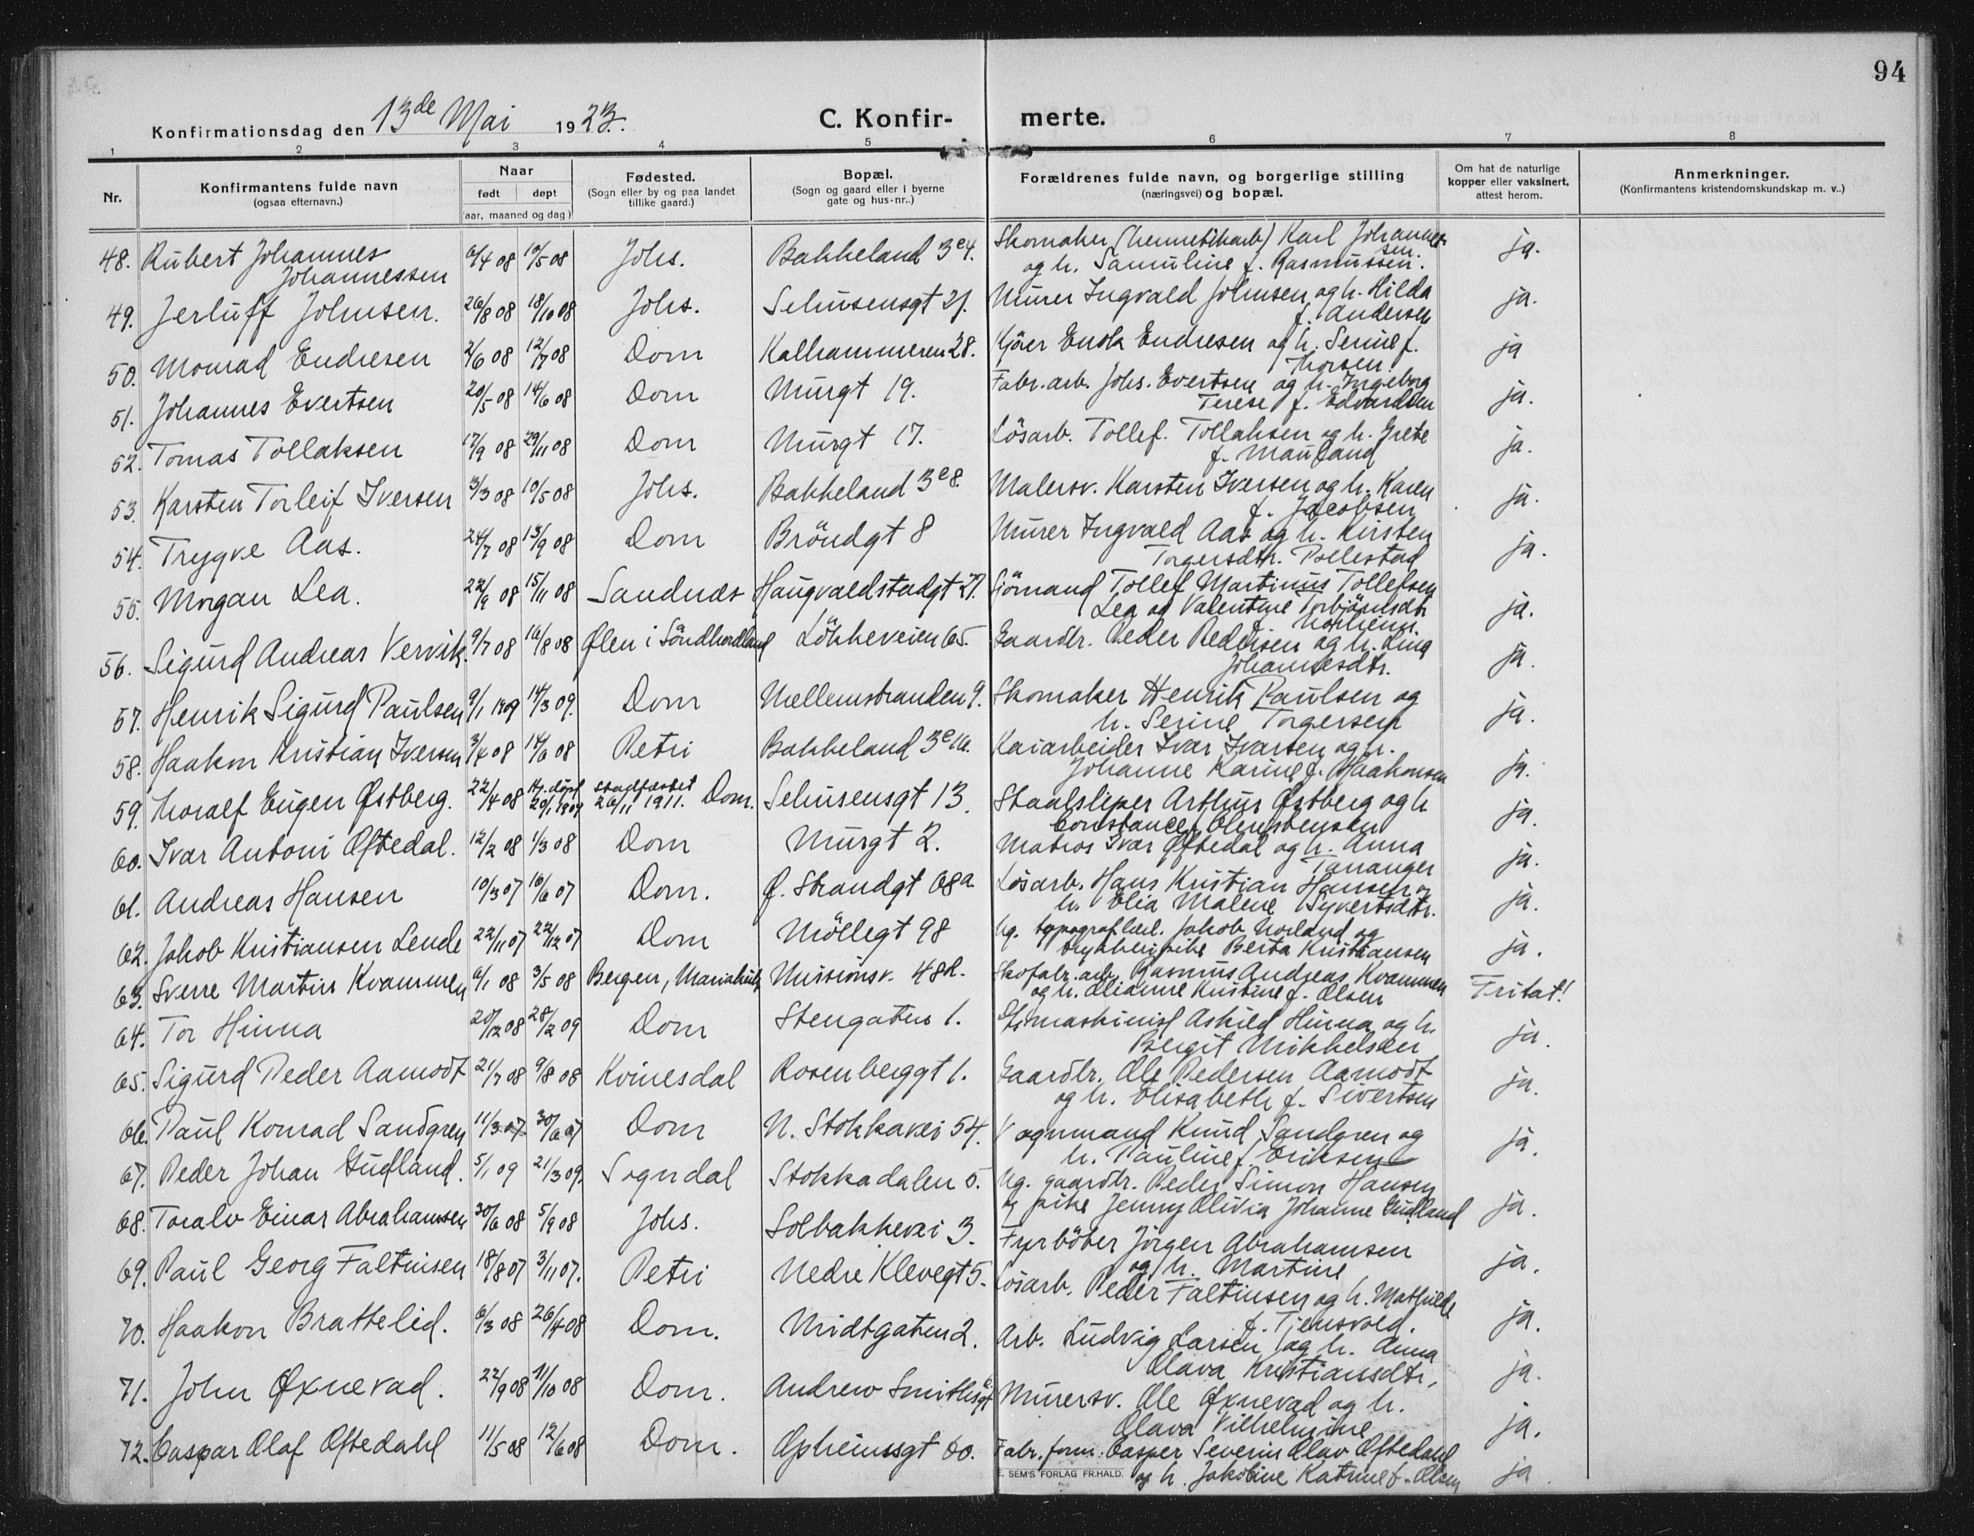 94
Konfirmationsdag den 13de Mai 1923. C. Konfir- merte.
1 2 3 4 5 6 7 8
Nr. Konfirmantens fulde navn (ogsaa efternavn.) Naar født døpt (aar, maaned og dag) Fødested. (Sogn eller by og paa landet tillike gaard.) Bopæl. (Sogn og gaard eller i byerne gate og hus-nr.) Forældrenes fulde navn, og borgerlige stilling (næringsvei) og bopæl. Om hat de naturlige kopper eller vaksinert, attest herom. Anmerkninger. (Konfirmantens kristendomskundskap m. v.)
48. Rubert Johannes Johannessen 6/4 08 10/5 08 Johs. Bakkeland 3e4. Skomaker (hermetikarb) Karl Johannessen og h. Samuline f. Rasmussen. ja.
49. Jerluff Johnsen. 26/8 08 18/10 08 Johs. Sehusensgt 21. Murer Ingvald Johnsen og h. Hilda f. Andersen ja.
50. Monrad Endresen 2/6 08 12/7 08 Dom Kalhammeren 28. Kjører Enok Endresen og h. Serine f. Thorsen. ja
51. Johannes Evertsen 20/5 08 14/6 08 Dom Murgt 19. Fabr. arb. Johs. Evertsen og h. Ingeborg Terese f. Edvardsen ja.
52. Tomas Tollaksen 17/9 08 29/11 08 Dom Murgt 17. Lösarb. Tollef. Tollaksen og h. Grete f. Mauland ja.
53. Karsten Torleif Iversen 3/3 08 10/5 08 Johs. Bakkeland 3e8. Malersv. Karsten Iversen og h. Karen f. Jacobsen ja.
54. Trygve Aas. 24/7 08 13/9 08 Dom Bröndgt 8 Murer Ingvald Aas og h. Kirsten Torgersdtr. Pollestad ja.
55. Morgan Lea. 22/9 08 15/11 08 Sandnæs Haugvaldstadgt 29. Sjömand Tollef Martinus Tollefsen Lea og Valentine Torbjörnsdtr ja.
56. Sigurd Andreas Vervik. 9/7 08 16/8 08 Ølen i Söndhordland Lökkeveien 65. Gaardbr. Peder Pedersen og h. Lina Johannesdtr. ja.
57. Henrik Sigurd Paulsen 9/1 1909 14/3 09. Dom Mellemstranden 9. Skomaker Henrik Paulsen og h. Serine Torgersen ja.
58. Haakon Kristian Iversen 3/4 08 14/6 08 Petri Bakkeland 3e16. Kaiarbeider Ivar Iversen og h. Johanne Karine f. Haakonsen ja.
59. Thoralf Eugen Østberg. 22/4 08 hj. döpt 20/1 1909 stadfæstet 26/11 1911. Dom. Sehusensgt 13. Staalsliper Arthur Østberg og h Constance f. Clenstensen ja.
60. Ivar Antoni Oftedal. 12/2 08 1/3 08 Dom Murgt 2. Matros Ivar Oftedal og h. Anna Tananger ja.
61. Andreas Hansen 10/3 07 16/6 07 Dom. Ø. Strandgt 68a. Lösarb. Hans Kristian Hansen og h. Elia Malene Syvertsdtr. ja.
62. Jakob Kristiansen Lende 22/11 07 22/12 07 Dom Möllegt 98 Ug. typograflærl. Jakob Norland og trykkeripike Berta Kristiansen ja.
63. Sverre Martin Kvammen 6/1 08 3/5 08 Bergen, Mariakirk Missionsv. 48d. Skofabr. arb. Rasmus Andreas Kvammen og h. Olianne Kristine f. Olsen Fritat!
64. Tor Hinna 20/12 08 28/2 09 Dom Stengaten 1. Stmaskinist Askild Hinna og h. Bergit Mikkelsen ja.
65. Sigurd Peder Aamodt 21/7 08 9/8 08 Kvinesdal Rosenberggt 1. Gaardbr. Ole Pedersen Aamodt og h. Elisabeth f. Sivertsen ja.
66. Paul Konrad Sandgren 11/3 07. 30/6 07 Dom N. Stokkavei 54. Vognmand Knud Sandgren og h. Pauline f. Eriksen ja.
67. Peder Johan Gudland. 5/1 09 21/3 09. Sogndal Stokkadalen 5. Ug. gaardbr. Peder Simon Hansen og pike Jenny Olivia Johanne Gudland ja.
68. Toralv Einar Abrahamsen 30/6 08 5/9 08 Johs. Solbakkevei 3. Fyrböter Jörgen Abrahamsen og h. Martine ja.
69. Paul Georg Faltinsen 18/8 07 3/11 07. Petri Nedre Klevegt 5. Lösarb. Peder Faltinsen og h. Mathilde f. Tjensvold. ja.
70. Haakon Brattelid. 6/3 08 26/4 08 Dom. Midtgaten 2. Arb. Ludvig Larsen og h. Anna Olava Kristiansdtr. ja.
71. John Øxnevad. 22/9 08 11/10 08 Dom. Andrew Smithsgt Murersv. Ole Øxnevad og h. Olava Vilhelmine ja.
72. Caspar Olaf Oftedahl 11/5 08 12/6 08 Dom. Opheimsgt 60. Fabr. form. Casper Severin Olav Oftedahl og h. Jakobine Katrine f. Olsen ja
E. SEM'S FORLAG FR.HALD.